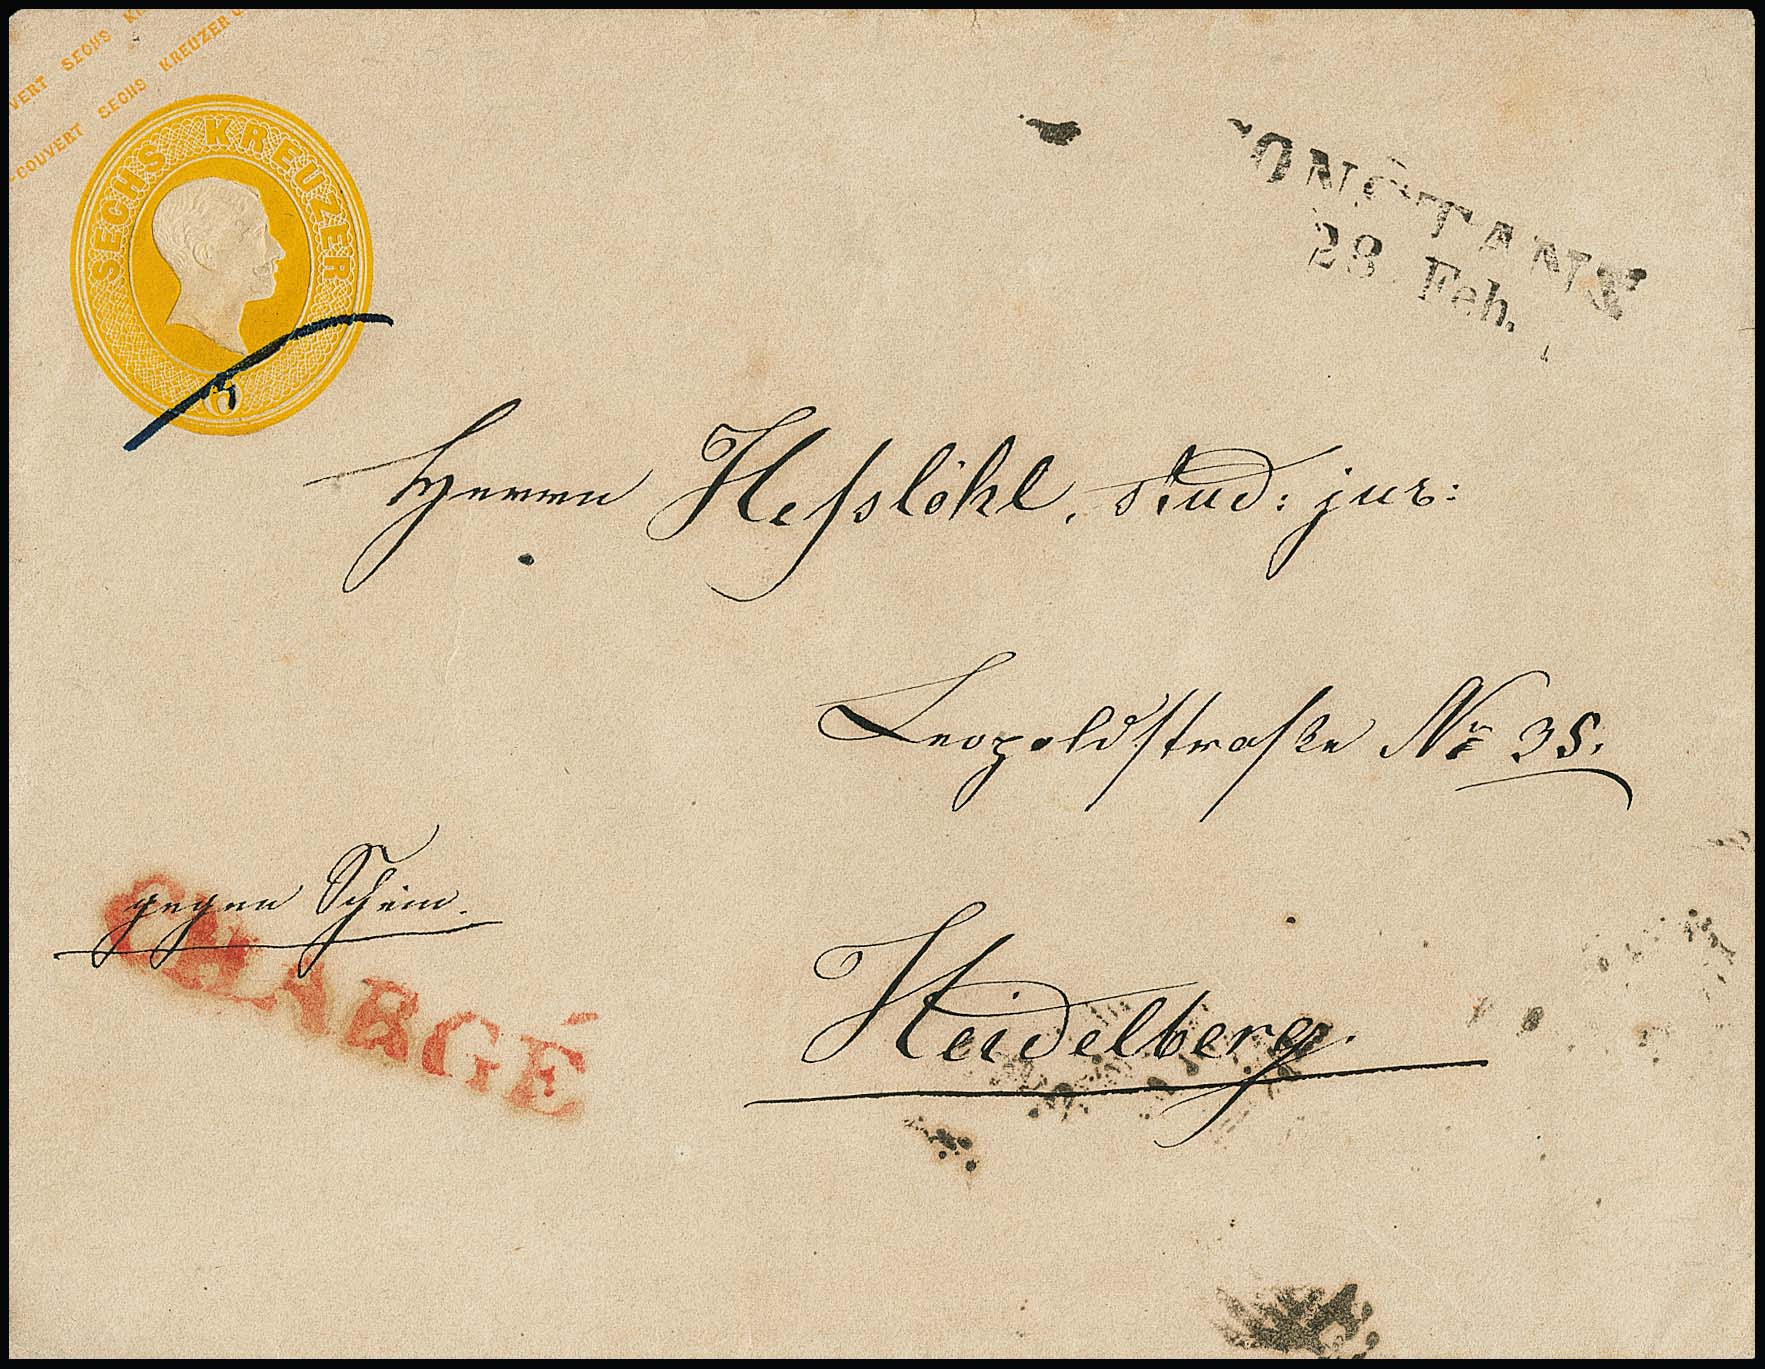 SECHS
VERT SECHS KREUZER
COUVERT SECHS KREUZER
SECHS KREUZER
6
CONSTANZ
28 Feb.
Herrn Hesslöhl, stud: jur:
Leopoldstraße Nr 35.
gegen Schein.
CHARGÉ
Heidelberg.